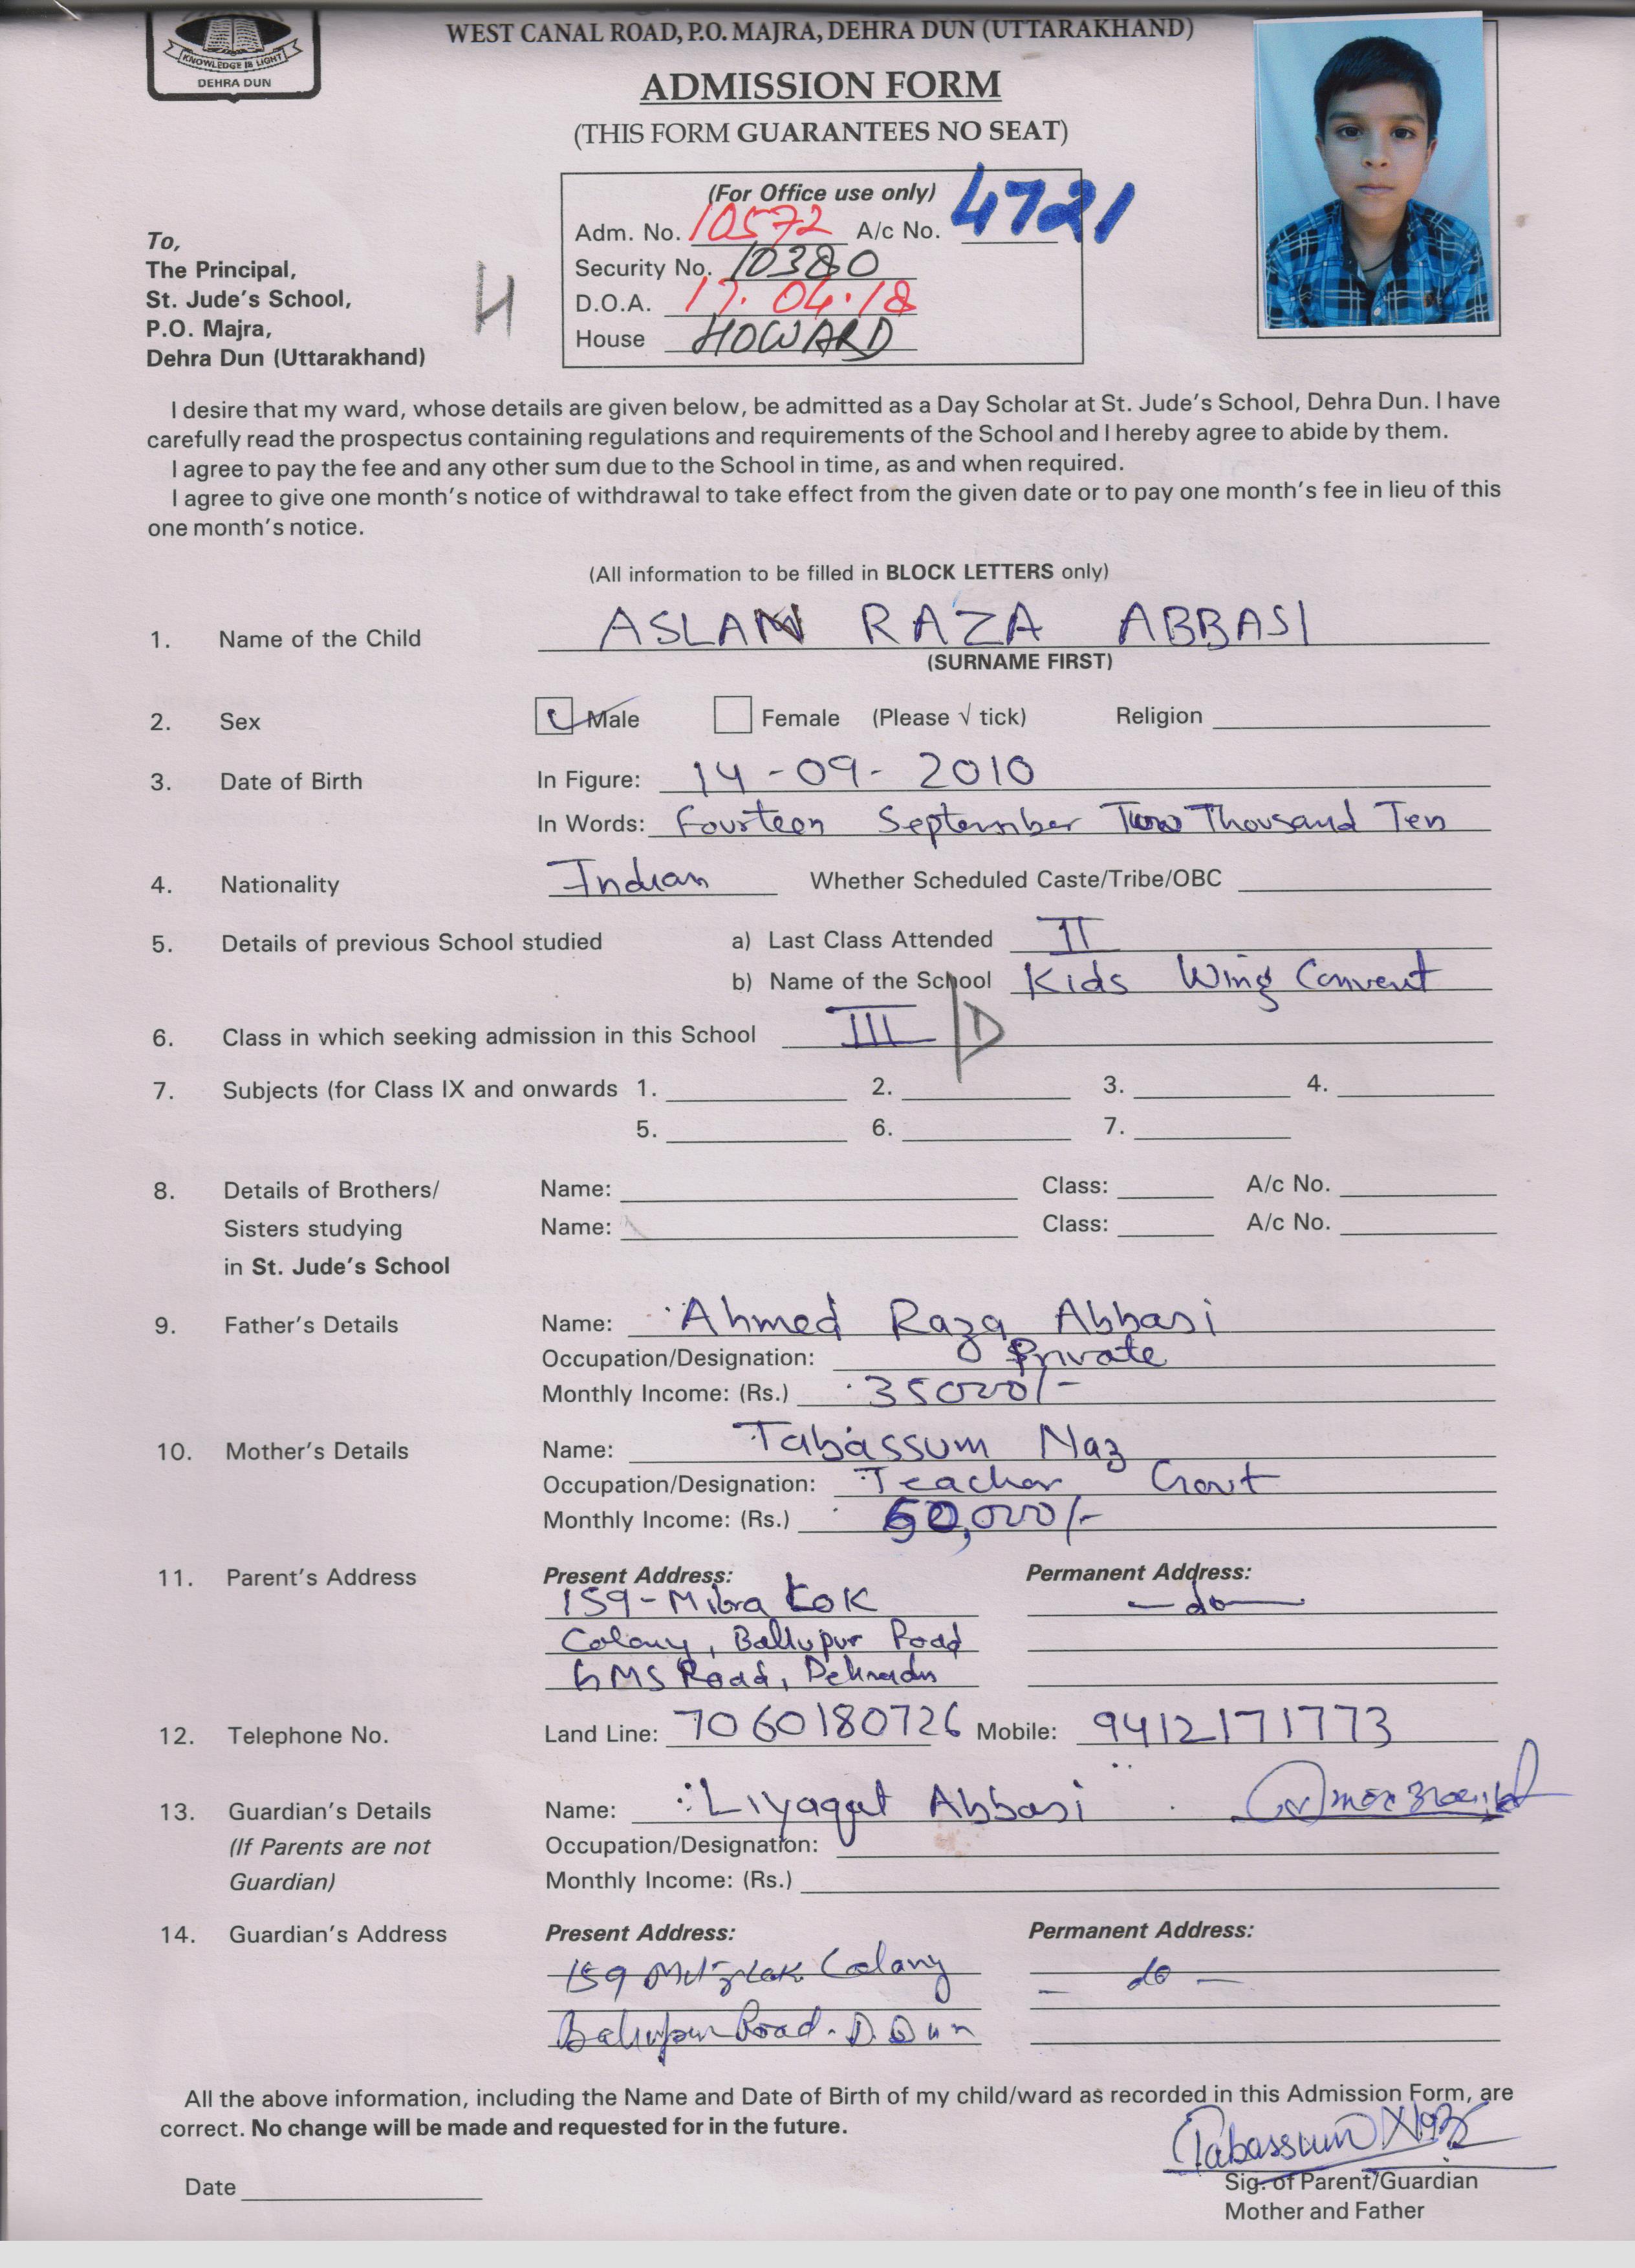 KNOWLEDGE IS LIGHT
DEHRA DUN
WEST CANAL ROAD, P.O. MAJRA, DEHRA DUN (UTTARAKHAND)
ADMISSION FORM
(THIS FORM GUARANTEES NO SEAT)
(For Office use only)
Adm. No. 10572 A/c No. 4721
Security No. 10380
D.O.A. 17.04.18
House HOWARD
To,
The Principal,
St. Jude's School,
P.O. Majra,
Dehra Dun (Uttarakhand)
H
I desire that my ward, whose details are given below, be admitted as a Day Scholar at St. Jude's School, Dehra Dun. I have
carefully read the prospectus containing regulations and requirements of the School and I hereby agree to abide by them.
I agree to pay the fee and any other sum due to the School in time, as and when required.
I agree to give one month's notice of withdrawal to take effect from the given date or to pay one month's fee in lieu of this
one month's notice.
(All information to be filled in BLOCK LETTERS only)
1. Name of the Child ASLAN RAZA ABBASI
(SURNAME FIRST)
2. Sex Male Female (Please √ tick) Religion
3. Date of Birth In Figure: 14-09-2010
In Words: Fourteen September Two Thousand Ten
4. Nationality Indian Whether Scheduled Caste/Tribe/OBC
5. Details of previous School studied a) Last Class Attended II
b) Name of the School Kids Wing Convent
6. Class in which seeking admission in this School III D
7. Subjects (for Class IX and onwards 1. 2. 3. 4.
5. 6. 7.
8. Details of Brothers/ Name: Class: A/c No.
Sisters studying Name: Class: A/c No.
in St. Jude's School
9. Father's Details Name: Ahmed Raza Abbasi
Occupation/Designation: Private
Monthly Income: (Rs.) 35000/-
10. Mother's Details Name: Tabassum Naz
Occupation/Designation: Teacher Govt
Monthly Income: (Rs.) 60,000/-
11. Parent's Address Present Address: Permanent Address:
159-Mitra Lok -do-
Colony, Ballupur Road
GMS Road, Dehradun
12. Telephone No. Land Line: 7060180726 Mobile: 9412171773
13. Guardian's Details Name: Liyaqat Abbasi
(If Parents are not Occupation/Designation:
Guardian) Monthly Income: (Rs.)
14. Guardian's Address Present Address: Permanent Address:
159 Colony - do -
Ballupur Road. D. Dun
All the above information, including the Name and Date of Birth of my child/ward as recorded in this Admission Form, are
correct. No change will be made and requested for in the future.
Tabassum Naz
Date Sig. of Parent/Guardian
Mother and Father